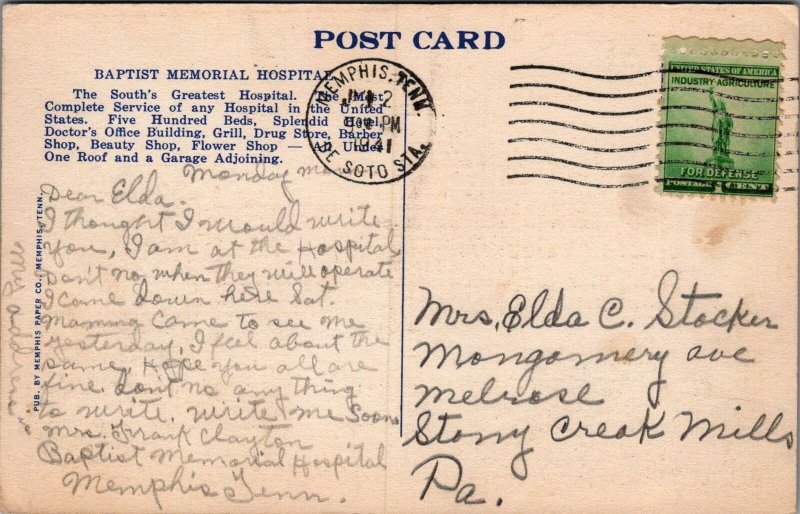 POST CARD
BAPTIST MEMORIAL HOSPITAL
The South's Greatest Hospital. The Most
Complete Service of any Hospital in the United
States. Five Hundred Beds, Splendid Hotel,
Doctor's Office Building, Grill, Drug Store, Barber
Shop, Beauty Shop, Flower Shop — All Under
One Roof and a Garage Adjoining.
MEMPHIS, TENN.
2
PM
1941
DE SOTO STA.
UNITED STATES OF AMERICA
INDUSTRY-AGRICULTURE
FOR DEFENSE
POSTAGE 1 CENT
Monday
Dear Elda.
I thought I would write
you, I am at the Hospital
Don't no when they will operate
I come down here Sat.
Mamma come to see me
yesterday, I feel about the
same, Hope you all are
fine don't no any thing
to write. write me soon
Mrs. Frank Clayton
Baptist Memorial Hospital
Memphis Tenn.
PUB. BY MEMPHIS PAPER CO., MEMPHIS, TENN.
Mrs. Elda C. Stocker
Mongomery ave
Melrose
Stony Creak Mills
Pa.